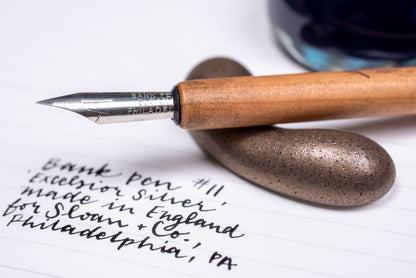 BANK PEN
PHILADEL
Bank Pen #11
'Excelsior Silver,'
made in England
for Sloan + Co.,
Philadelphia, PA